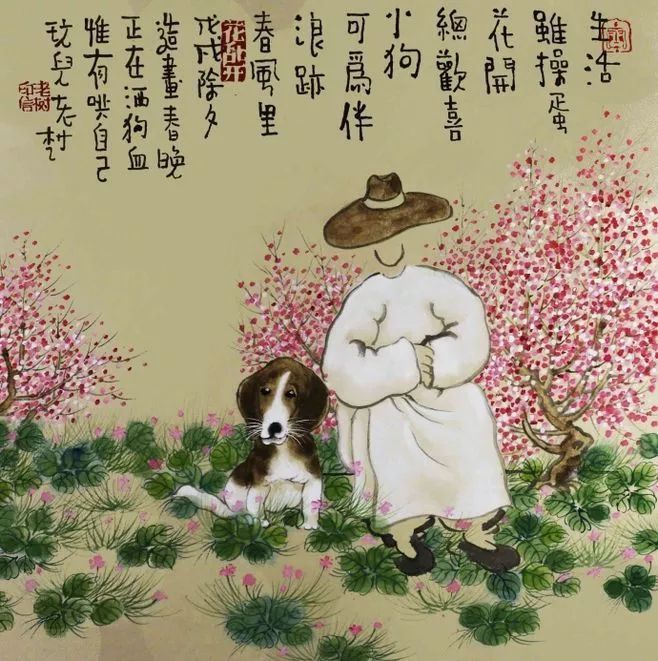 生活
雖操蛋
花開
總歡喜
小狗
可爲伴
浪跡
春風里
花乱开
戊戌除夕
造畫春晚
正在洒狗血
惟有哄自己
玩兒老